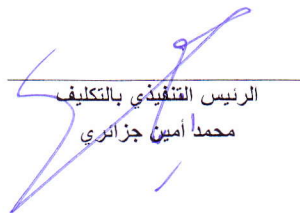 الرئيس التنفيذي بالتكليف
محمد أمين جزائري